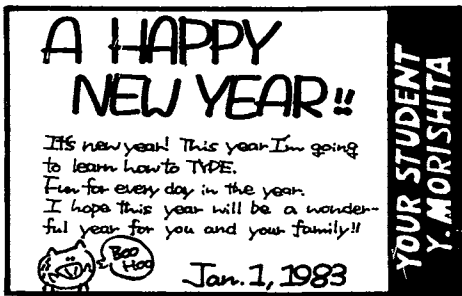 A HAPPY
NEW YEAR!!
It's new year! This year I'm going
to learn how to TYPE.
Fun for every day in the year.
I hope this year will be a wonder-
ful year for you and your family!!
Boo
Hoo
Jan. 1, 1983
YOUR STUDENT
Y. MORISHITA